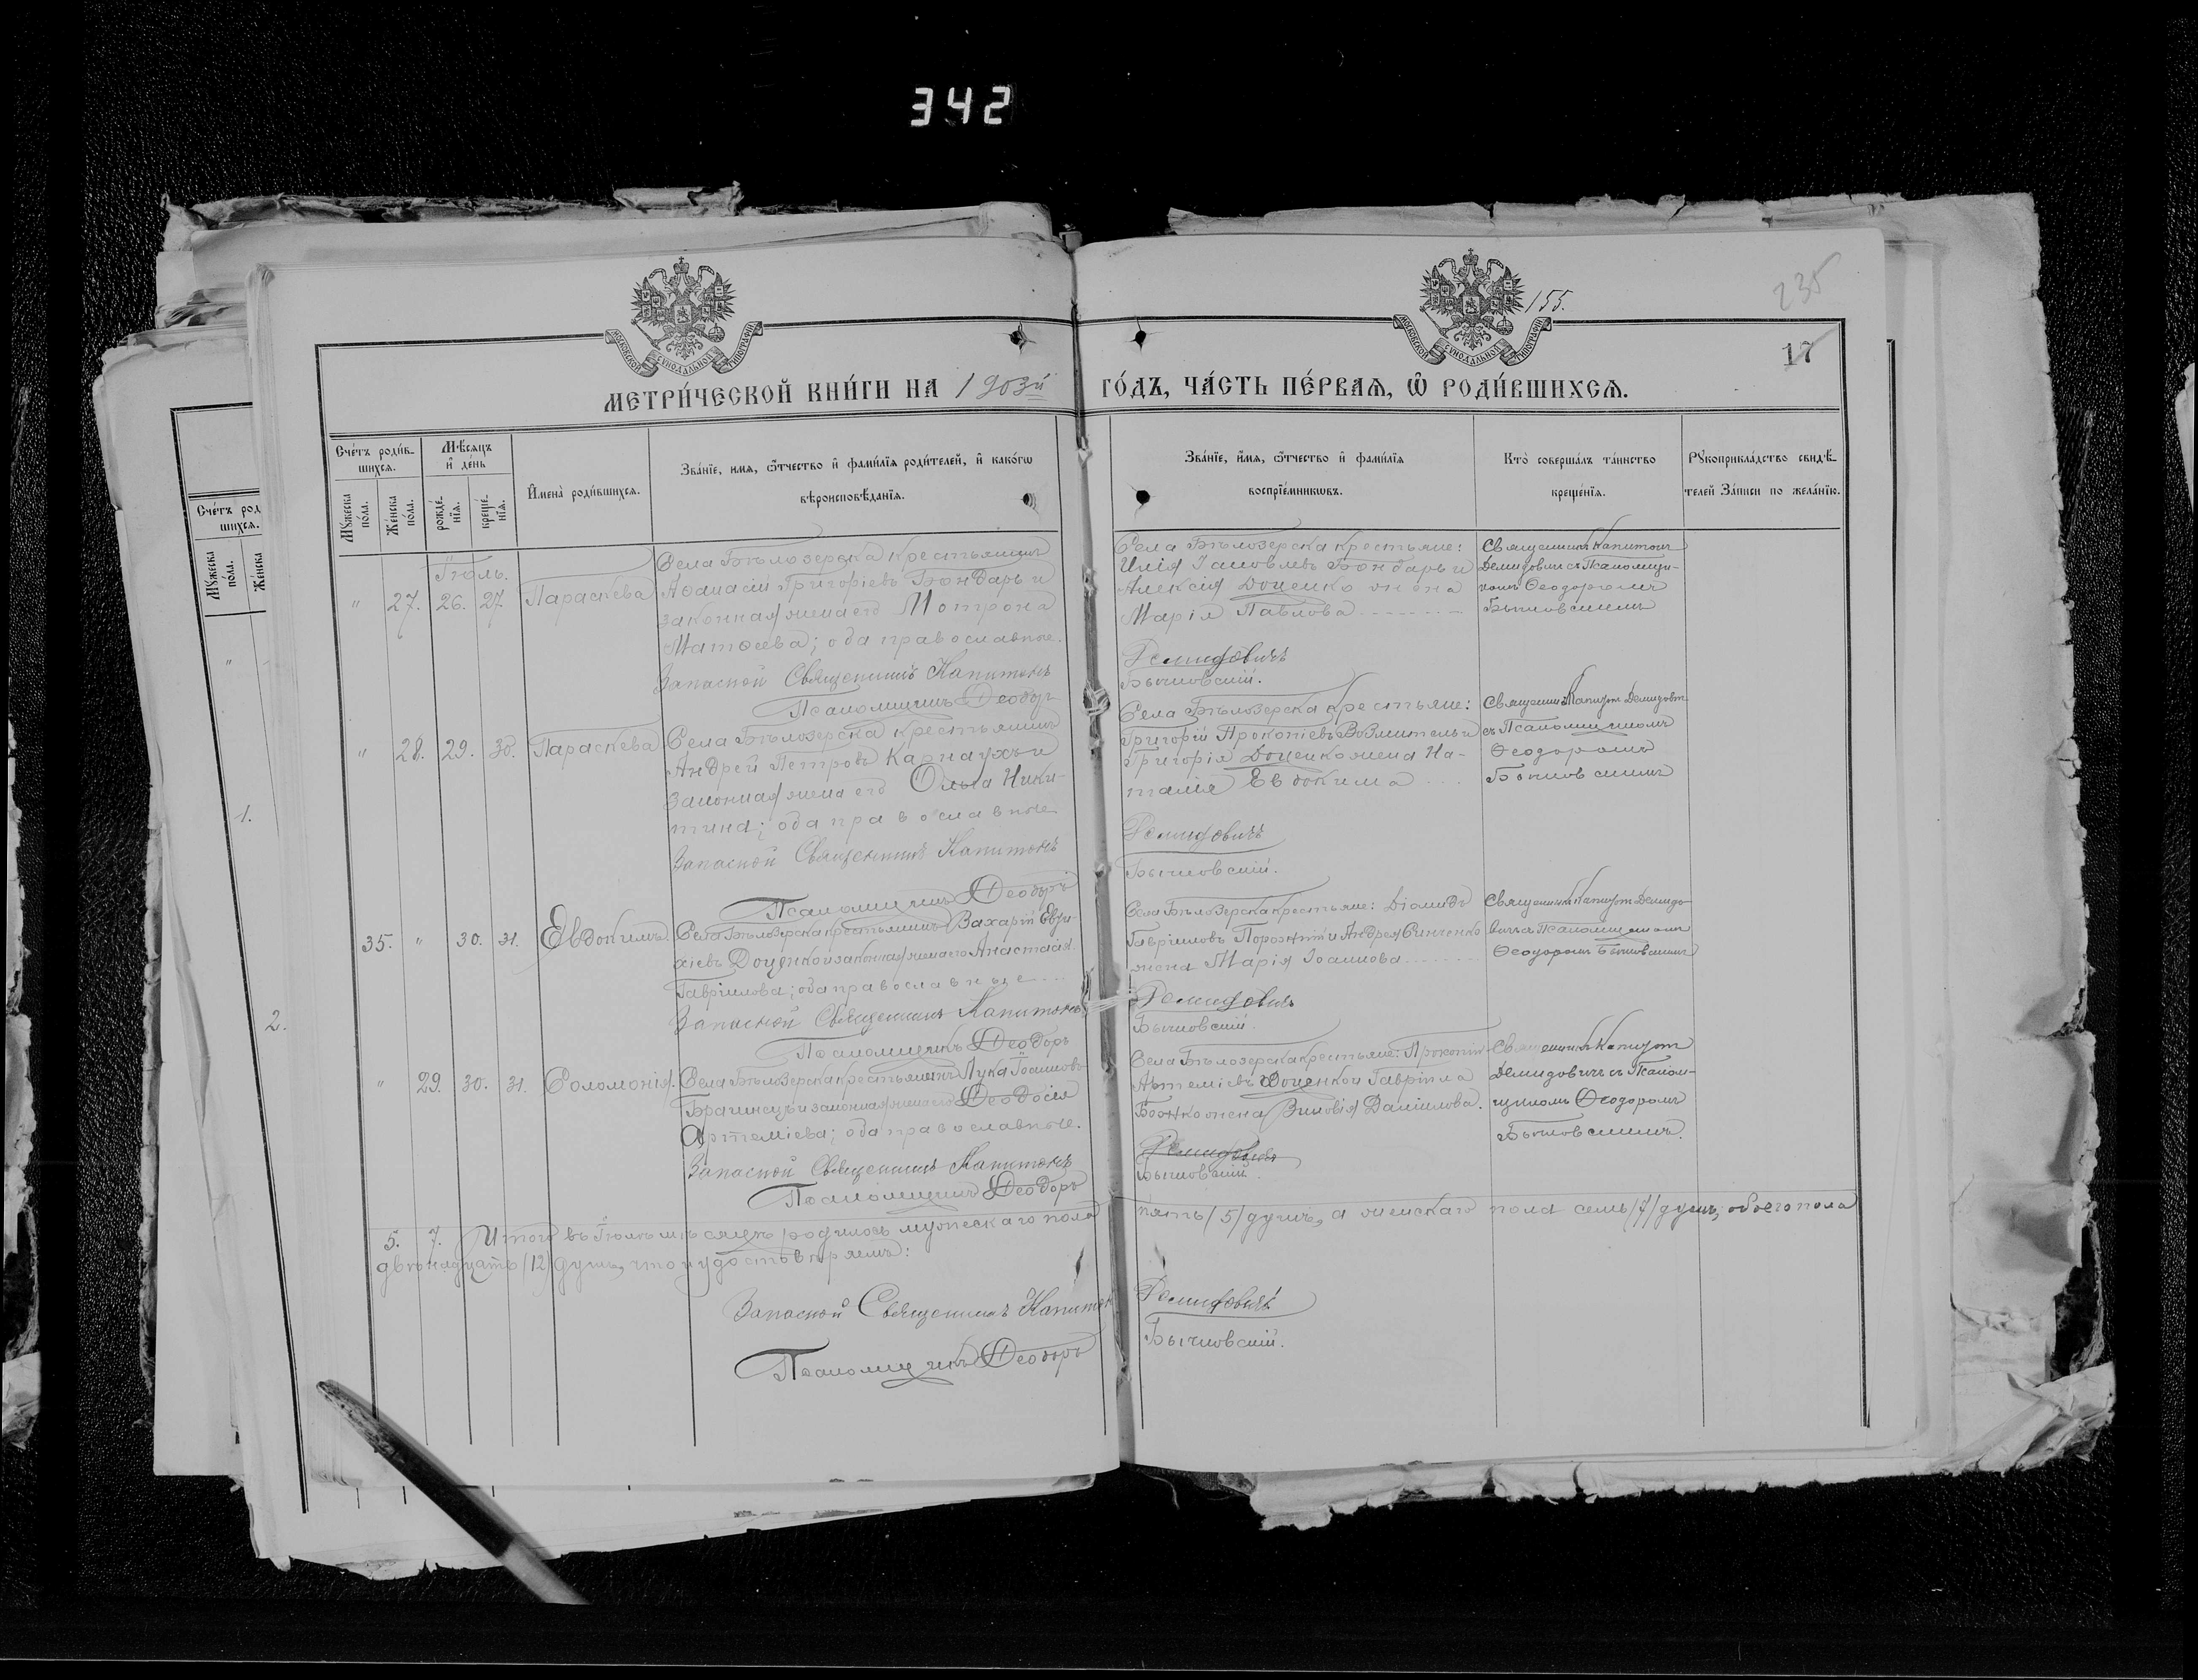 342
155.
235
17
МОСКОВСКОЙ СѴНОДАЛЬНОЙ ТИПОГРАФІИ
МОСКОВСКОЙ СѴНОДАЛЬНОЙ ТИПОГРАФІИ
МЕТРИ́ЧЕСКОЙ КНИ́ГИ НА 1903й ГО́ДЪ, ЧА́СТЬ ПЕ́РВАѦ, Ѡ҆ РОДИ́ВШИХСѦ.
Сче́тъ роди́в-
шихсѧ.
Мꙋ́жеска по́ла.
Же́нска по́ла.
Мѣ́сѧцъ и҆ де́нь
рожде́-нїѧ.
креще́-нїѧ.
И҆мена̀ роди́вшихсѧ.
Зва́нїе, имѧ, ѻ҆́тчество и҆ фамѝлїѧ роди́телей, и҆ како́гѡ
вѣроисповѣ́данїѧ.
Зва́нїе, и҆́мѧ, ѻ҆́тчество и҆ фамѝлїѧ
воспрїе́мникѡвъ.
Кто̀ соверша́лъ та́инство
креще́нїѧ.
Рꙋкоприкла́дство свидѣ́-
телей за́писи по жела́нїю.
Сче́тъ род
шихсѧ.
Мꙋ́жеска по́ла.
Же́нска
1.
2.
Іюль.
" 27. 26. 27. Параскева
Села Бѣлозерска крестьянинъ
Аѳанасій Григоріевъ Бондарь и
законная жена его Мотрона
Матѳеева; оба православные.
Запасной Священникъ Капитонъ
Псаломщикъ Ѳеодоръ
Села Бѣлозерска крестьяне:
Илія Іаковлевъ Бондарь и
Алексія Доценко жена
Марія Павлова
Демидовичъ
Бычковскій.
Священникъ Капитонъ
Демидовичъ съ Псаломщи-
комъ Ѳеодоромъ
Бычковскимъ
" 28. 29. 30. Параскева
Села Бѣлозерска крестьянинъ
Андрей Петровъ Карнаухъ и
законная жена его Ольга Ники-
тина; оба православные
Запасной Священникъ Капитонъ
Псаломщикъ Ѳеодоръ
Села Бѣлозерска крестьяне:
Григорій Прокопіевъ и
Григорія Доценко жена На-
талія Евдокима
Демидовичъ
Бычковскій.
Священникъ Капитонъ Демидовичъ
съ Псаломщикомъ
Ѳеодоромъ
Бычковскимъ
35. " 30. 31. Евдокимъ.
Села Бѣлозерска крестьянинъ Захарій Евти-
хіевъ Доценко и законная жена его Анастасія
Гавріилова; оба православные
Запасной Священникъ Капитонъ
Псаломщикъ Ѳеодоръ
Села Бѣлозерска крестьяне: Діомидъ
Гавріиловъ и Андрея Синченко
жена Марія Іоаннова
Демидовичъ
Бычковскій.
Священникъ Капитонъ Демидо-
вичъ съ Псаломщикомъ
Ѳеодоромъ Бычковскимъ
" 29. 30. 31. Соломонія.
Села Бѣлозерска крестьянинъ Лука Іоанновъ
Брагинецъ и законная жена его Ѳеодосія
Артеміева; оба православные.
Запасной Священникъ Капитонъ
Псаломщикъ Ѳеодоръ
Села Бѣлозерска крестьяне: Прокопій
Артеміевъ Доценко и Гавріила
Божко жена Зиновія Даніилова.
Демидовичъ
Бычковскій.
Священникъ Капитонъ
Демидовичъ съ Псалом-
щикомъ Ѳеодоромъ
Бычковскимъ.
5. 7. Итого въ Іюлѣ мѣсяцѣ родилось мужескаго пола пять /5/ душъ, а женскаго пола семь /7/ душъ, обоего пола
двѣнадцать /12/ душъ, что и удостовѣряемъ:
Запасной Священникъ Капитонъ Демидовичъ
Псаломщикъ Ѳеодоръ Бычковскій.